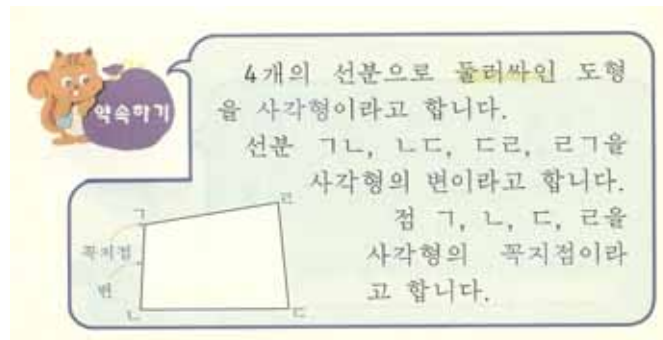 약속하기
4개의 선분으로 둘러싸인 도형
을 사각형이라고 합니다.
선분 ㄱㄴ, ㄴㄷ, ㄷㄹ, ㄹㄱ을
사각형의 변이라고 합니다.
점 ㄱ, ㄴ, ㄷ, ㄹ을
사각형의 꼭지점이라
고 합니다.
ㄱ
ㄹ
꼭지점
변
ㄴ
ㄷ